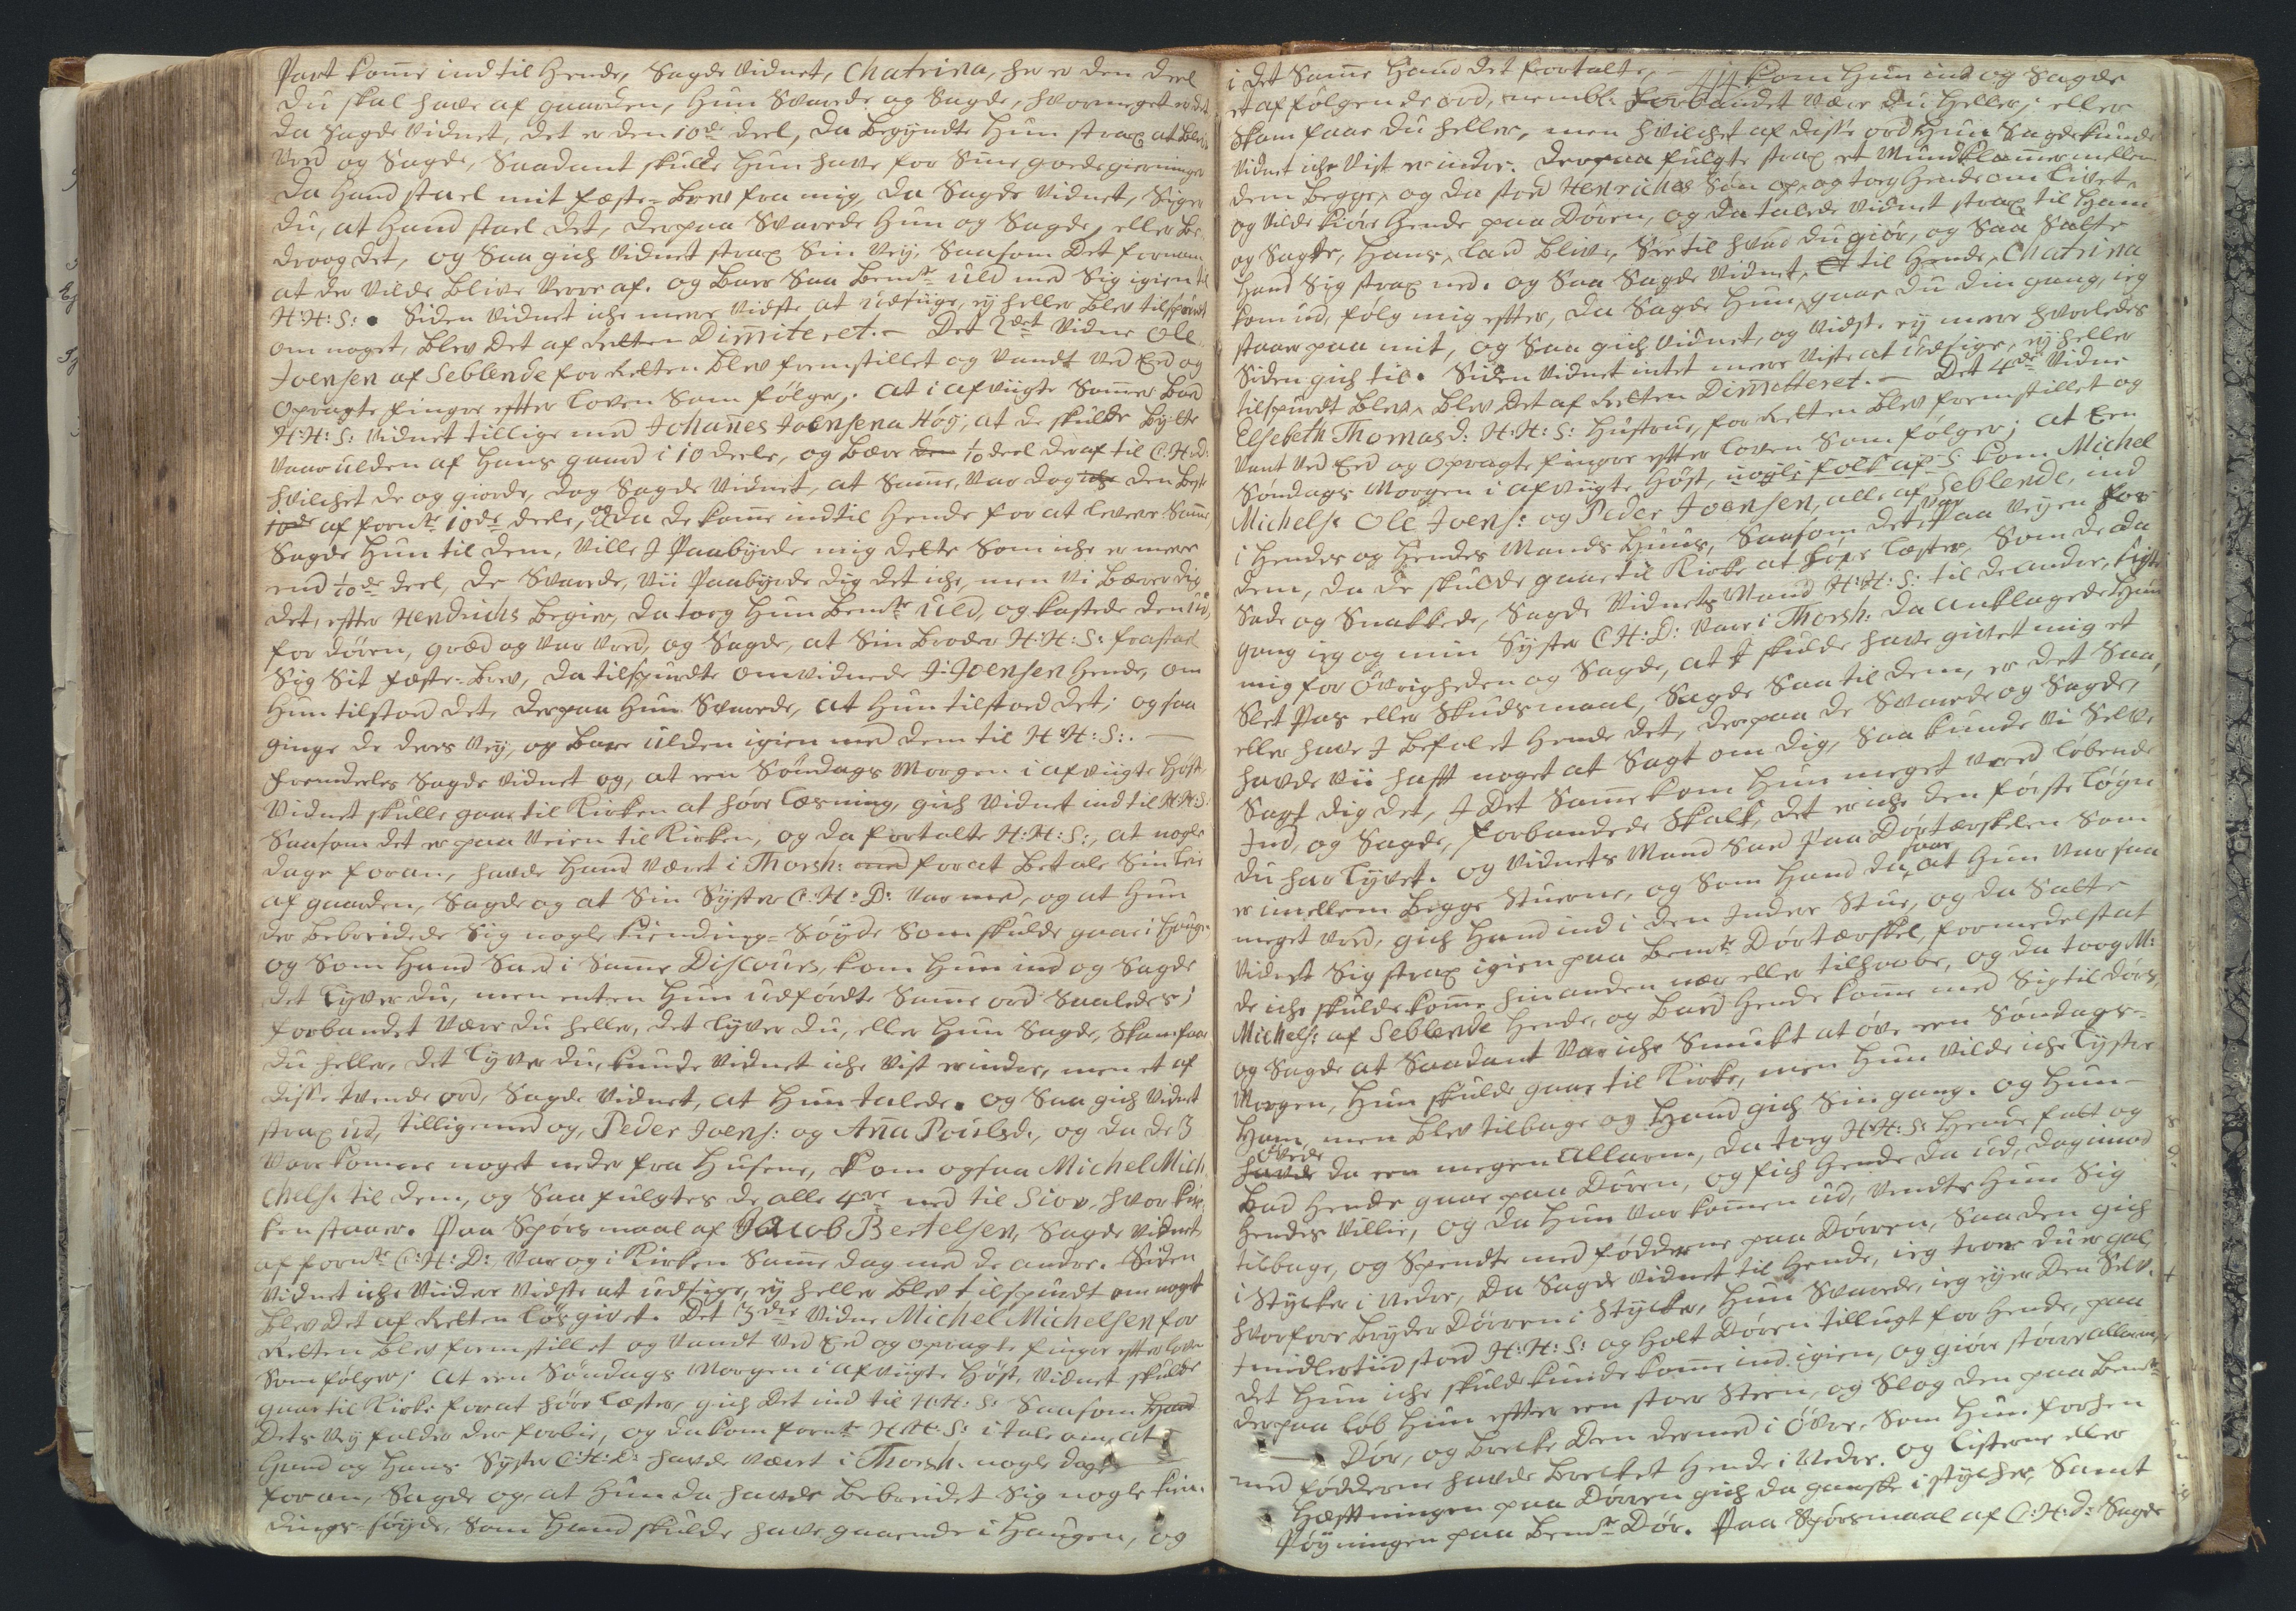 Part komme ind til Hende, Sagde Vidnet, Chatrina, her er den deel
du skal have af gaarden, Hun Svarede og Sagde, hvormeget er det
da Sagde Vidnet, det er den 10de deel, da begyndte Hun strax at blive
Vred og Sagde, Saadant skulde Hun have for Sine goede gierninger
da Hand stael mit fæste-brev fra mig, da Sagde Vidnet, Siger
du, at Hand stael det, derpaa Svarede Hun og Sagde, eller be-
droog det, og Saa gich Vidnet strax Sin Vey, Saasom det fornam
at der vilde blive Verre af. og bare Saa bemte Uld med Sig igien til
H: H: S: Siden Vidnet iche mere vidste at udsige, ey heller blev tilspurdt
om noget, blev det af Retten Dimiteret. — Det 2det Vidne Ole
Joensen af Seblende for Retten blev fremstillet og Vandt ved Eed og
opragte finger efter loven Som følger; at i afvigte Sommer bad
H: H: S: Vidnet tillige med Johannes Joensen a Høj, at de skulde bytte
Vaar ulden af Hans gaard i 10 deele, og bære den 1/10 deel der af til C: H: D:
hvilchet de og giorde, dog Sagde Vidnet, at Samme, Var dog iche den beste
10de af fornte 10de deele, og da de komme ind til Hende for at levere Samme,
Sagde Hun til dem, Ville I Paabyrde mig dette Som iche er mere
end 1/10de deel, de Svarede, Vii Paabyrde dig det iche, men Vi bærer dig
det, efter Hendrichs begier, da tog Hun bemte Uld, og kastede den ud,
for døren, græd og var Vred, og Sagde, at Sin broder H: H: S: frastael
Sig Sit fæste-brev, da tilspurdte omvidnede J: Joensen Hende, om
Hun tilstoed det, derpaa Hun Svarede, at Hun tilstoed det; og saa
ginge de deres Vey, og bare Ulden igien med dem til H: H: S: —
fremdeeles Sagde Vidnet og, at een Søndags Morgen i afvigte Høst,
Vidnet skulle gaae til Kirken at høre Læsning, gich Vidnet ind til H: H: S:
Saasom det er paa Veien til Kirken, og da fortalte H: H: S:, at nogle
dage foran, havde Hand været i Thorsh: med for at betale Sin leie
af gaarden, Sagde og at Sin Syster C: H: D: Var med, og at Hun
der bebreidede Sig nogle Kiendings-Søyde Som skulde gaae i Haugen
og Som Hand Sad i Samme Discours, kom Hun ind og Sagde
det lyver du, men enten Hun udførdte Samme ord Saaledes;
forbandet være du heller, det lyver du, eller Hun Sagde, Skam faae
du heller, det lyver du, kunde Vidnet iche vist erindre, men et af
disse tvende ord, Sagde Vidnet, at Hun talede. og Saa gich Vidnet
strax ud, tillige med og, Peder Joens: og Anna Poulsd:, og da de 3
Vare komne noget neder fra Husene, kom ogsaa Michel Mich
chels: til dem, og Saa fulgtes de alle 4re ned til Siov, hvor Kir-
ken staaer. Paa Spørsmaal af Jacob Bertelsen, Sagde Vidnet
at fornte C: H: D: Var og i Kirken Samme dag med de andre. Siden
Vidnet iche Viidere Vidste at udsige, ey heller blev tilspurdt om noget
blev det af Retten løsgivet. Det 3die Vidne Michel Michelsen for
Retten blev fremstillet og Vandt ved Eed og opragte finger efter loven
Som følger; at een Søndags Morgen i afvigte Høst, Vidnet skulde
gaae til Kirke for at høre Læsten, gich det ind til H: H: S: Saasom Hand
dets Vey falder der forbie, og da kom fornte H: H: S: i tale om, at
Hand og Hans Syster C: H: D: havde været i Thorsh: nogle dage
foran, Sagde og, at Hun da havde bebreidet Sig nogle Kien-
dings-søyde, Som Hand skulde have gaaende i Haugen, og
i det Samme Hand det fortalte, — kom Hun ind og Sagde
et af følgende ord, nembl: Forbandet være du heller, eller
Skam faae du heller, men hvilchet af disse ord Hun Sagde kunde
Vidnet iche Vist erindre. derpaa fulgte strax et Mundklammer mellem
dem begge, og da stoed Henriches Søn op, og tog Hende om livet,
og vilde kiøre Hende paa Døren, og da talede Vidnet strax til Ham
og Sagde, Hans, lad blive, See til hvad du giør, og Saa Satte
Hand Sig strax ned. og Saa Sagde Vidnet, til Hende, Chatrina
kom ud, følg mig efter, da Sagde Hun, gaae du din gang, ieg
staaer paa mit, og Saa gich Vidnet, og vidste ey mere hvorledes
Siden gich til. Siden Vidnet intet mere Viste at udsige, ey heller
tilspurdt blev, blev det af Retten Dimitteret. — Det 4de Vidne
Elsebeth Thomasd: H: H: S: Hustrue, for Retten blev fremstillet og
Vant ved Eed og opragte finger efter loven Som følger; at Een
Søndags Morgen i afvigte Høst, nogle folk af S kom Michel
Michels: Ole Joens: og Peder Joensen, alle af Seblende, ind
i Hendes og Hendes Mands Huus, Saasom det var Paa Veyen for
dem, da de skulde gaae til Kirke at høre Læsten, Som de da
Sade og Snakkede, Sagde Vidnets Mand H: H: S: til de andre, Sidste
gang ieg og min Syster C: H: D: Vare i Thorsh: da anklagede Hun
mig for Øvrigheden og Sagde, at I skulde have givet mig et
Slet Pas eller Skudsmaal, Sagde Saa til dem, er det Saa,
eller have I befalet Hende det, derpaa de Svarede og Sagde,
havde vii hafft noget at Sagt om dig, Saa kunde Vi Selve
Sagt dig det, I det Samme kom Hun meget Vred løbende
Ind, og Sagde, forbandede Skalk, det er iche den første Løgn
du har Lyvet. og Vidnets Mand Sad Paa Dørtærskelen Som
er imellem begge Stuerne, og Som Hand da saae at Hun Var saa
meget Vred, gich Hand ind i den Inder Stue, og da Satte
Vidnet Sig strax igien paa bemte Dørtærskel, formedelst at
de iche skulde komme hinanden nær eller tilhobe, og da toog M:
Michels: af Seblende Hende, og bad Hende komme med Sig til dørs,
og Sagde at Saadant Var iche Smukt at øve een Søndags-
Morgen, Hun skulde gaae til Kirke, men Hun vilde iche lystre
Ham, men blev tilbage og Hand gich Sin gang. og Hun
havde øvede da een megen Allarm, da tog H: H: S: Hende fatt og
bad Hende gaae paa Døren, og fich Hende da ud, dog imod
Hendes Villie, og da Hun var kommen ud, vendte Hun Sig
tilbage, og Spendte med fødderne paa Dørren, Saa den gich
i Stycker i nedre, da Sagde Vidnet til Hende, ieg troer du er gal,
hvorfore bryder Dørren i Stycker, Hun Svarede, ieg eyer den Selv.
Imidlertiid stoed H: H: S: og Holt Døren tillugt for Hende, paa
det Hun iche skulde kunde komme ind igien, og giøre større allarm,
derpaa løb Hun efter een stoer Steen, og Slog den paa bemte
— Dør, og brekte den dermed i Øvre, Som Hun forhen
med fødderne havde brecket Hende i Nedre. og Listerne eller
Hæfftningen paa Dørren gich da ganske i stycher, Samt
Røyningen paa bemte Dør. Paa Spørsmaal af C: H: D: Sagde